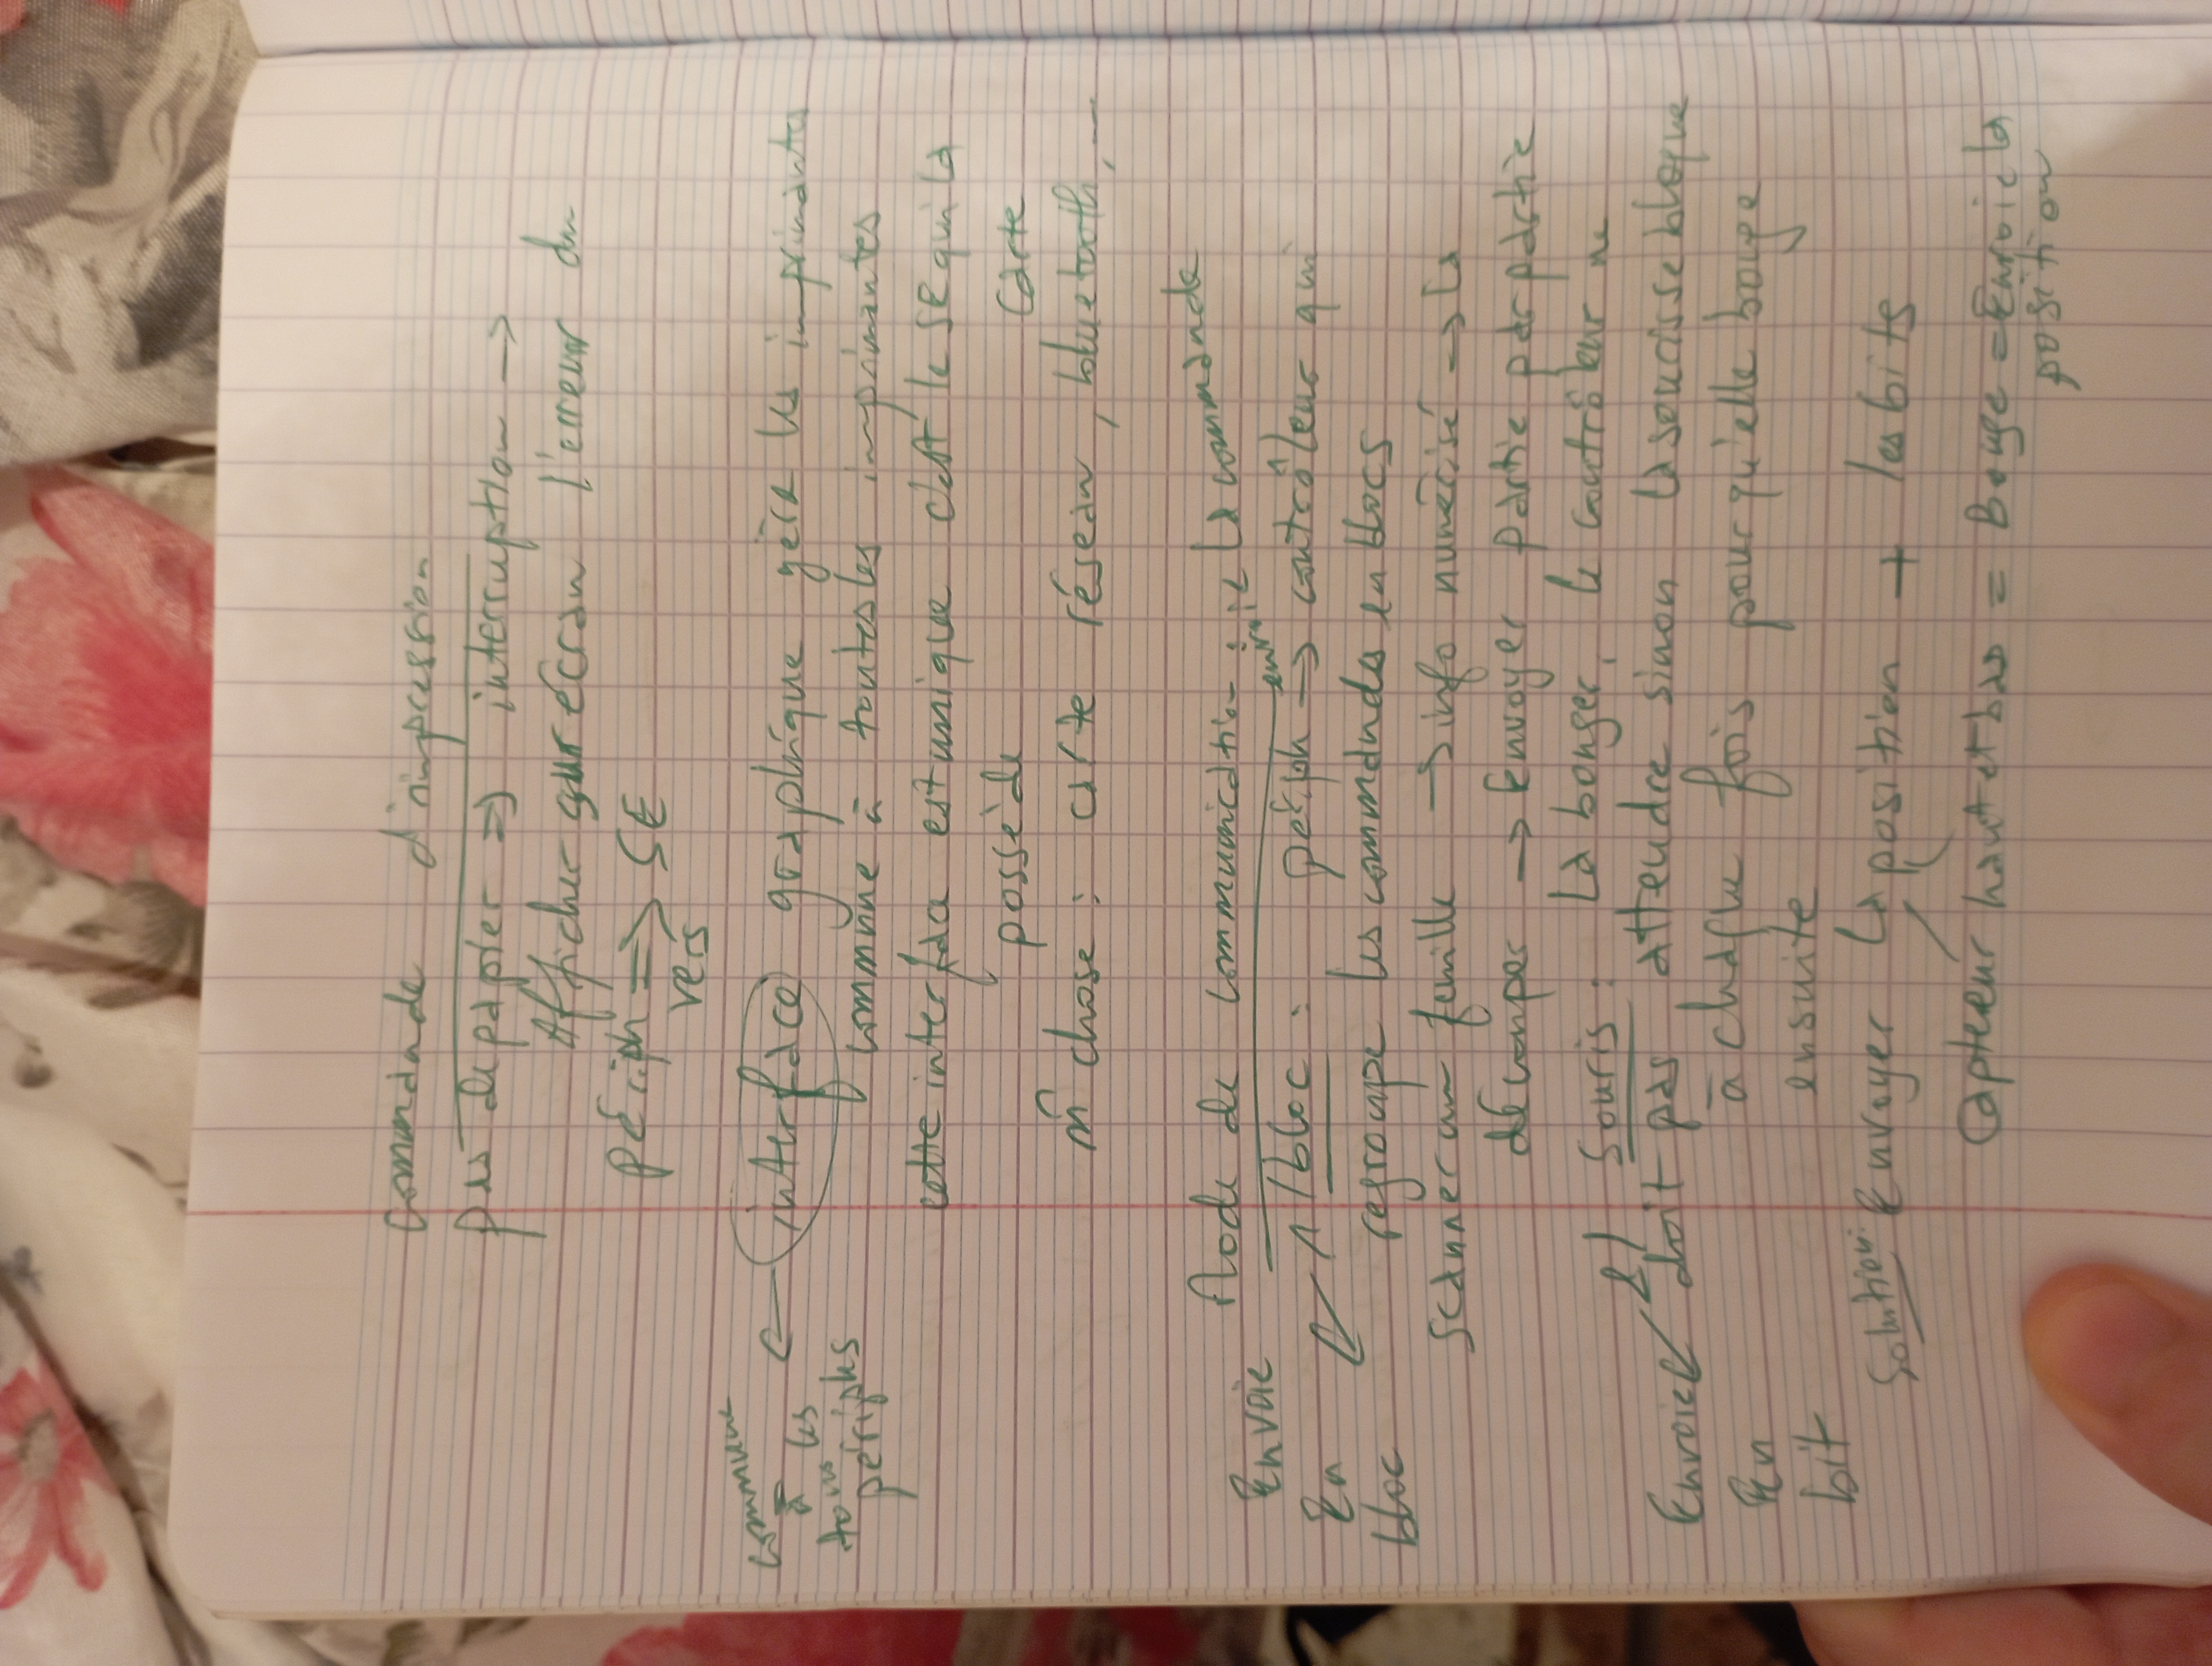 Commande d'impression
Pas de papier => interruption →
Afficher sur écran l'erreur du
périph => SE
vers
commune
à
tous les
périphs
← interface graphique gère les imprimantes
commune à toutes les imprimantes
cette interface est unique c'est le SE qui la
possède
Carte
m̂ chose : carte réseau, bluetooth, ...
Mode de communication : la commande
envoie
Envoie
en
bloc
1/ bloc : périph => contrôleur qui
regroupe les commandes en blocs
Scanner un feuille → info numérisé → la
décomper → Envoyer partie par partie
Envoie
En
bit
2/ Souris : la bouger, le contrôleur ne
doit pas attendre sinon la souris se bloque
à chaque fois pour qu'elle bouge
ensuite
Solution : Envoyer la position + les bits
Capteur haut et bas = Bouge = Envoie la
position